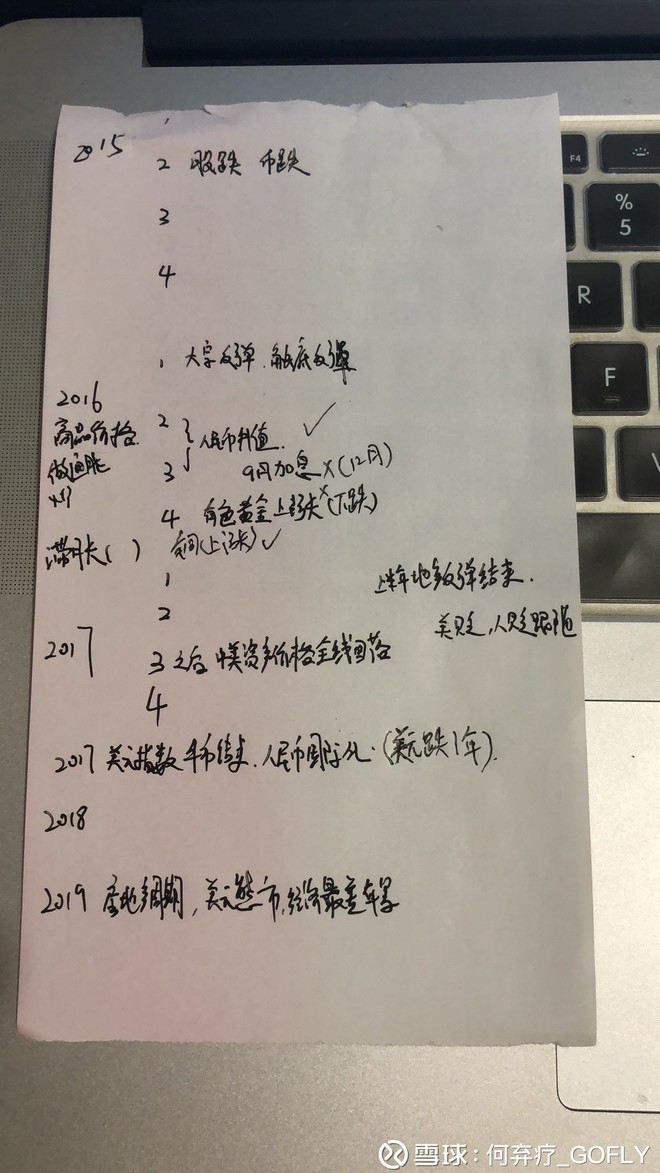 2015
1
2 股跌 币跌
3
4
1 大宗反弹.触底反弹
2016
商品价格
做通胀
2
3 } 人民币升值. ✓
9月加息 ×(12月)
4 有色黄金上涨×(下跌)
滞涨( ) (上涨) ✓
1
上半年地产反弹结束.
2
美贬,人贬
2017
3 之后 中美资产价格全线回落
4
2017 美元指数牛市结束.人民币国际化.(美元跌1年).
2018
2019 房地产周期,美元熊市,经济最差年景
雪球:何弃疗_GOFLY
F4
%
5
R
F